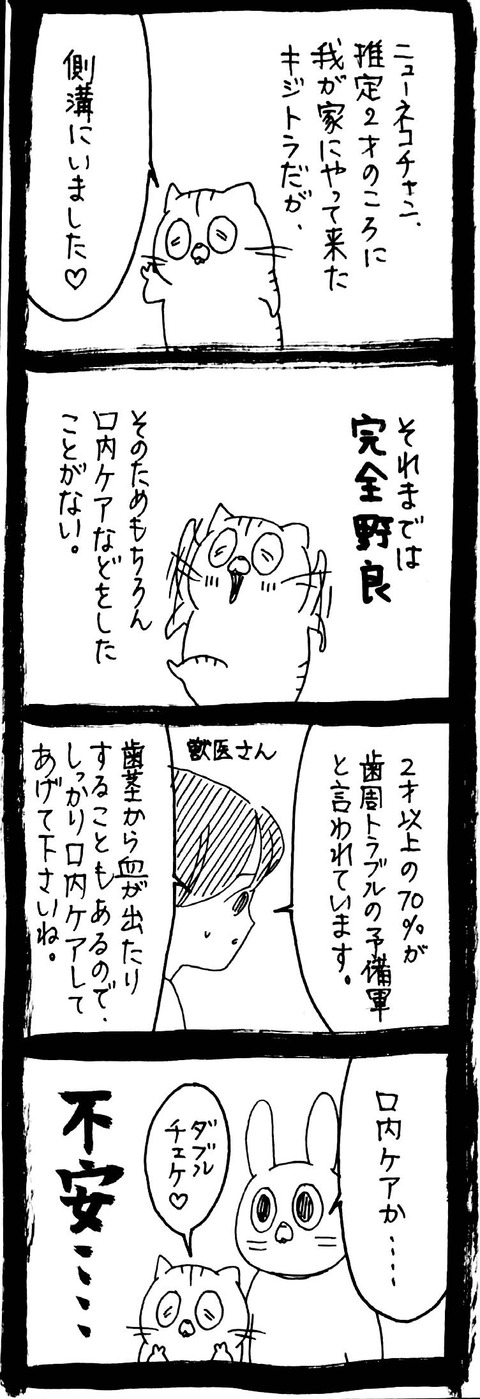 ニューネコチャン、
推定2才のころに
我が家にやって来た
キジトラだが、
側溝にいました♡
それまでは
完全野良
そのためもちろん
口内ケアなどをした
ことがない。
2才以上の70%が
歯周トラブルの予備軍
と言われています。
獣医さん
歯茎から血が出たり
することもあるので、
しっかり口内ケアして
あげて下さいね。
口内ケアか……
ダブル
チェケ♡
不安……